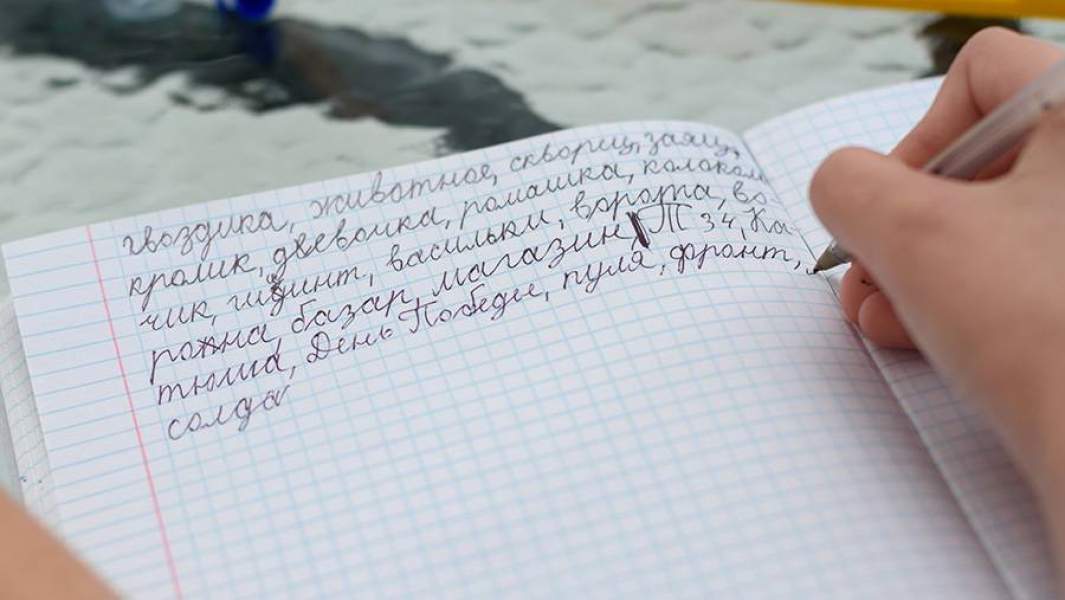 гвоздика, животное, сквориц, заяц,
кролик, девочка, ромашка, колоколь
чик, васильки, ворота, во-
базар, магазин, Т 34, Ка-
тюша, День Победы, пуля, фронт,
солда